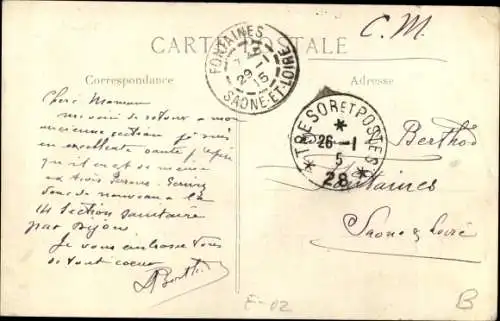 C. M.
CARTE POSTALE
Correspondance
Adresse
FONTAINES
29-1
15
SAONE-ET-LOIRE
TRESOR ET POSTES
*
26-1
5
* 28 *
Chère Maman
me voici de retour a mon
ancienne section je suis
en excellente santé j'espère
qu'il en est de même
a
donc de nouveau a la
14 Section sanitaire
par Dijon
Je vous embrasse tous
de tout coeur
Berthod
Fontaines
Saone & Loire
E-02
B